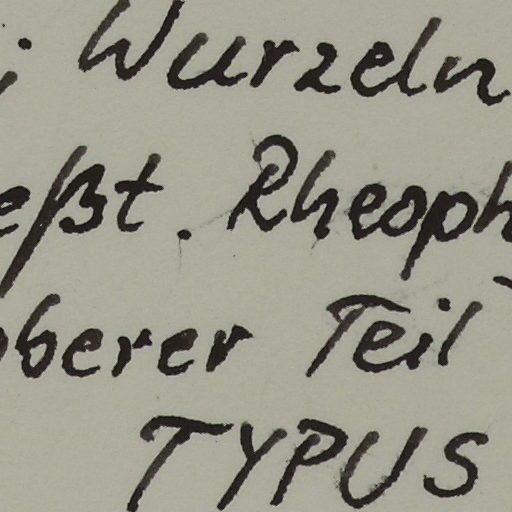 ; Wurzeln
eßt. Rheoph
oberer Teil
TYPUS